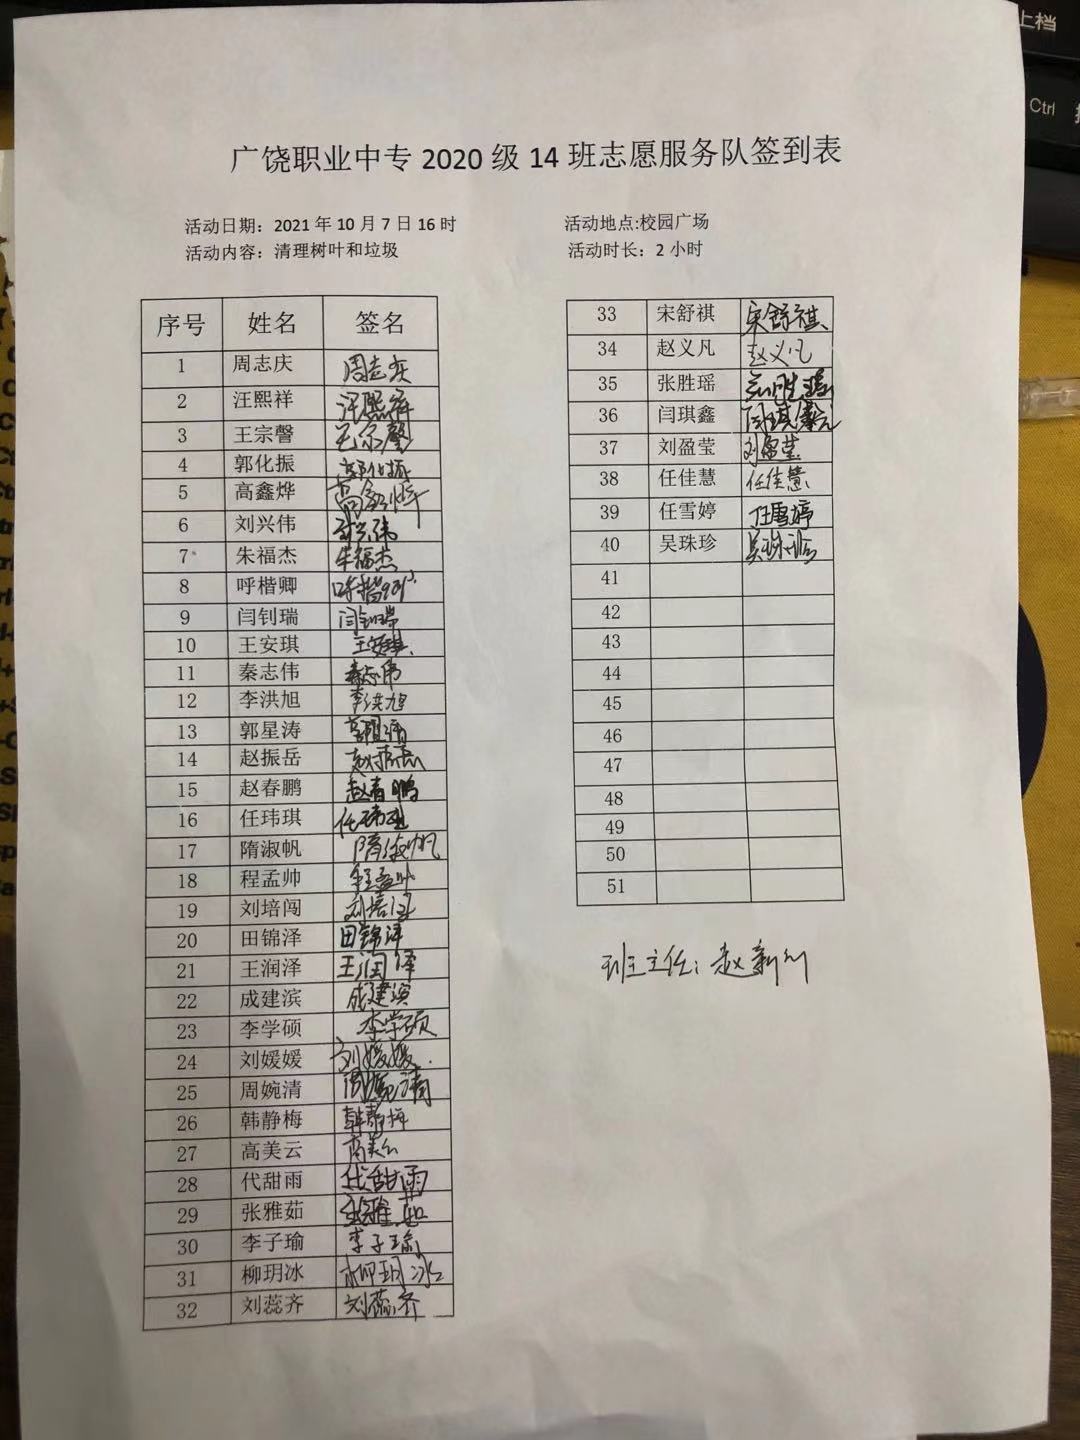 上档
Ctrl
广饶职业中专 2020 级 14 班志愿服务队签到表
活动日期：2021 年 10 月 7 日 16 时 活动地点:校园广场
活动内容：清理树叶和垃圾 活动时长：2 小时
序号 姓名 签名
1 周志庆 周志庆
2 汪熙祥 汪熙祥
3 王宗罄 王宗罄
4 郭化振 郭化振
5 高鑫烨 高鑫烨
6 刘兴伟 刘兴伟
7 朱福杰 朱福杰
8 呼楷卿 呼楷卿
9 闫钊瑞 闫钊瑞
10 王安琪 王安琪
11 秦志伟 秦志伟
12 李洪旭 李洪旭
13 郭星涛 郭星涛
14 赵振岳 赵振岳
15 赵春鹏 赵春鹏
16 任玮琪 任玮琪
17 隋淑帆 隋淑帆
18 程孟帅 程孟帅
19 刘培闯 刘培闯
20 田锦泽 田锦泽
21 王润泽 王润泽
22 成建滨 成建滨
23 李学硕 李学硕
24 刘媛媛 刘媛媛
25 周婉清 周婉清
26 韩静梅 韩静梅
27 高美云 高美云
28 代甜雨 代甜雨
29 张雅茹 张雅茹
30 李子瑜 李子瑜
31 柳玥冰 柳玥冰
32 刘蕊齐 刘蕊齐
33 宋舒祺 宋舒祺
34 赵义凡 赵义凡
35 张胜瑶 张胜瑶
36 闫琪鑫 闫琪鑫
37 刘盈莹 刘盈莹
38 任佳慧 任佳慧
39 任雪婷 任雪婷
40 吴珠珍 吴珠珍
41
42
43
44
45
46
47
48
49
50
51
班主任：赵新